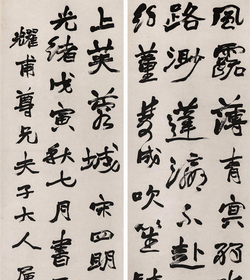 風露薄青冥
路渺蓬瀛不赴
約董雙成吹笙
上芙蓉城 宋四明
光緒戊寅秋七月書
耀甫尊兄夫子大人屬